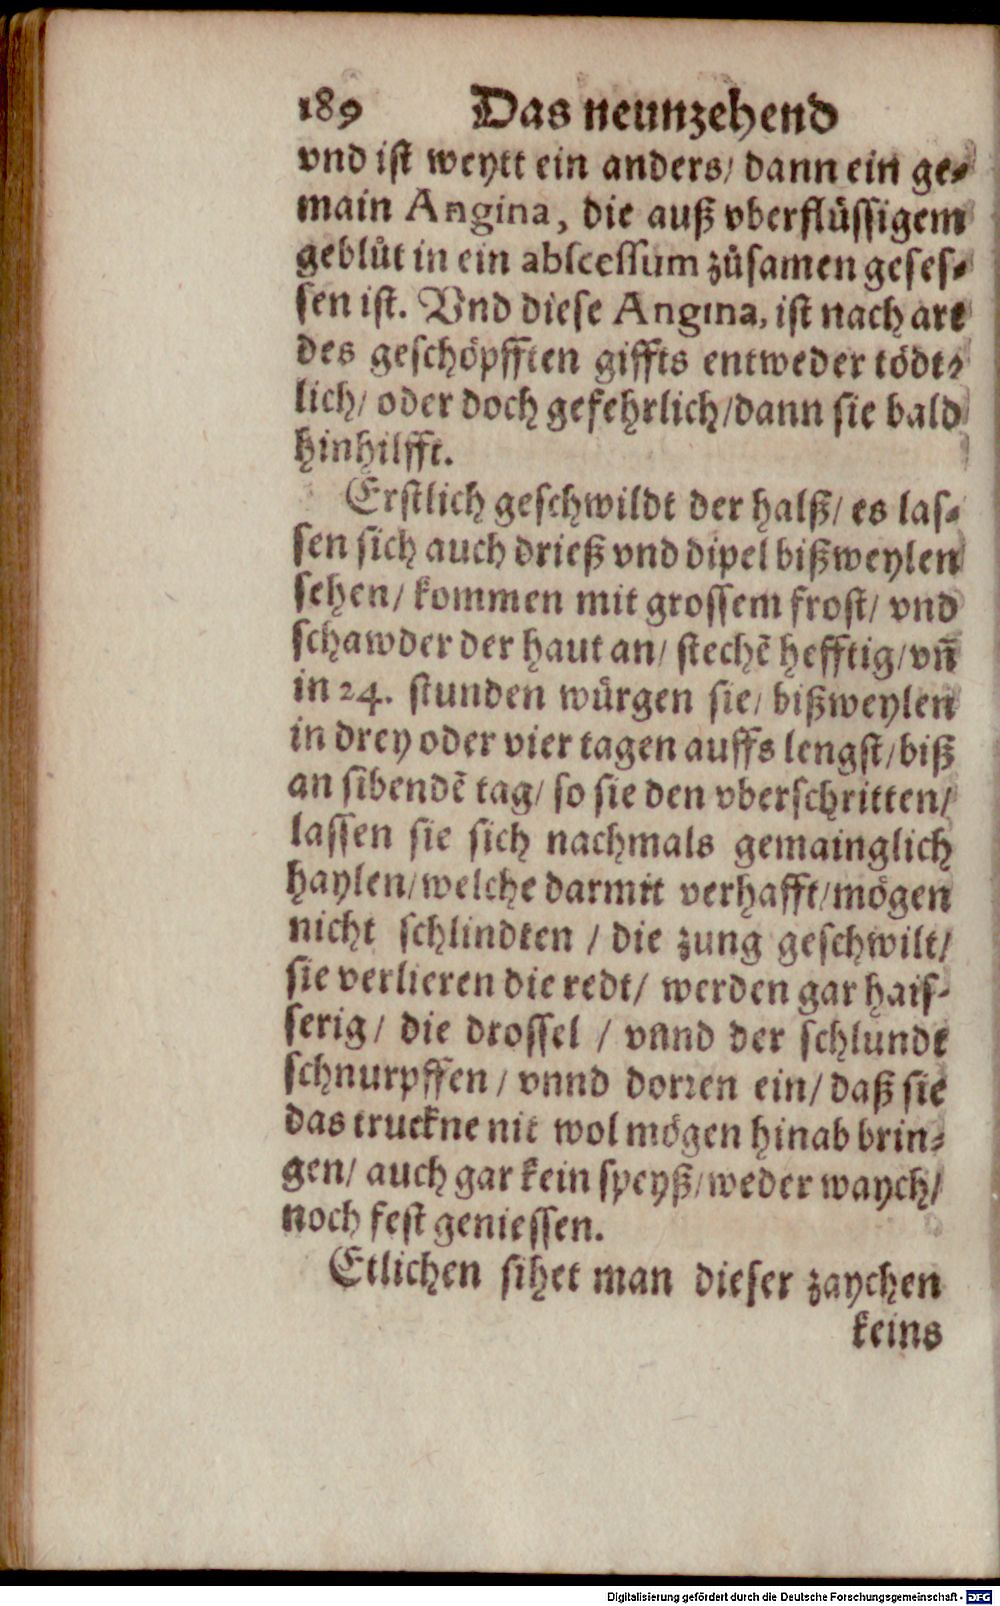 189 Das neunzehend
vnd ist weytt ein anders/ dann ein ge⸗
main Angina, die auß vberflüssigem
geblůt in ein abscessum zůsamen geses⸗
sen ist. Vnd diese Angina, ist nach art
des geschöpfften giffts entweder tödt⸗
lich/ oder doch gefehrlich/dann sie bald
hinhilfft.
Erstlich geschwildt der halß/ es las⸗
sen sich auch drieß vnd dipel bißweylen
sehen/ kommen mit grossem frost/ vnd
schawder der haut an/ stechẽ hefftig/vñ
in 24. stunden würgen sie/ bißweylen
in drey oder vier tagen auffs lengst/biß
an sibendẽ tag/ so sie den vberschritten/
lassen sie sich nachmals gemainglich
haylen/welche darmit verhafft/mögen
nicht schlindten / die zung geschwilt/
sie verlieren die redt/ werden gar hais⸗
serig/ die drossel / vnnd der schlundt
schnurpffen/ vnnd dorren ein/ daß sie
das truckne nit wol mögen hinab brin⸗
gen/ auch gar kein speyß/weder waych/
noch fest geniessen.
Etlichen sihet man dieser zaychen
keins
Digitalisierung gefördert durch die Deutsche Forschungsgemeinschaft - DFG